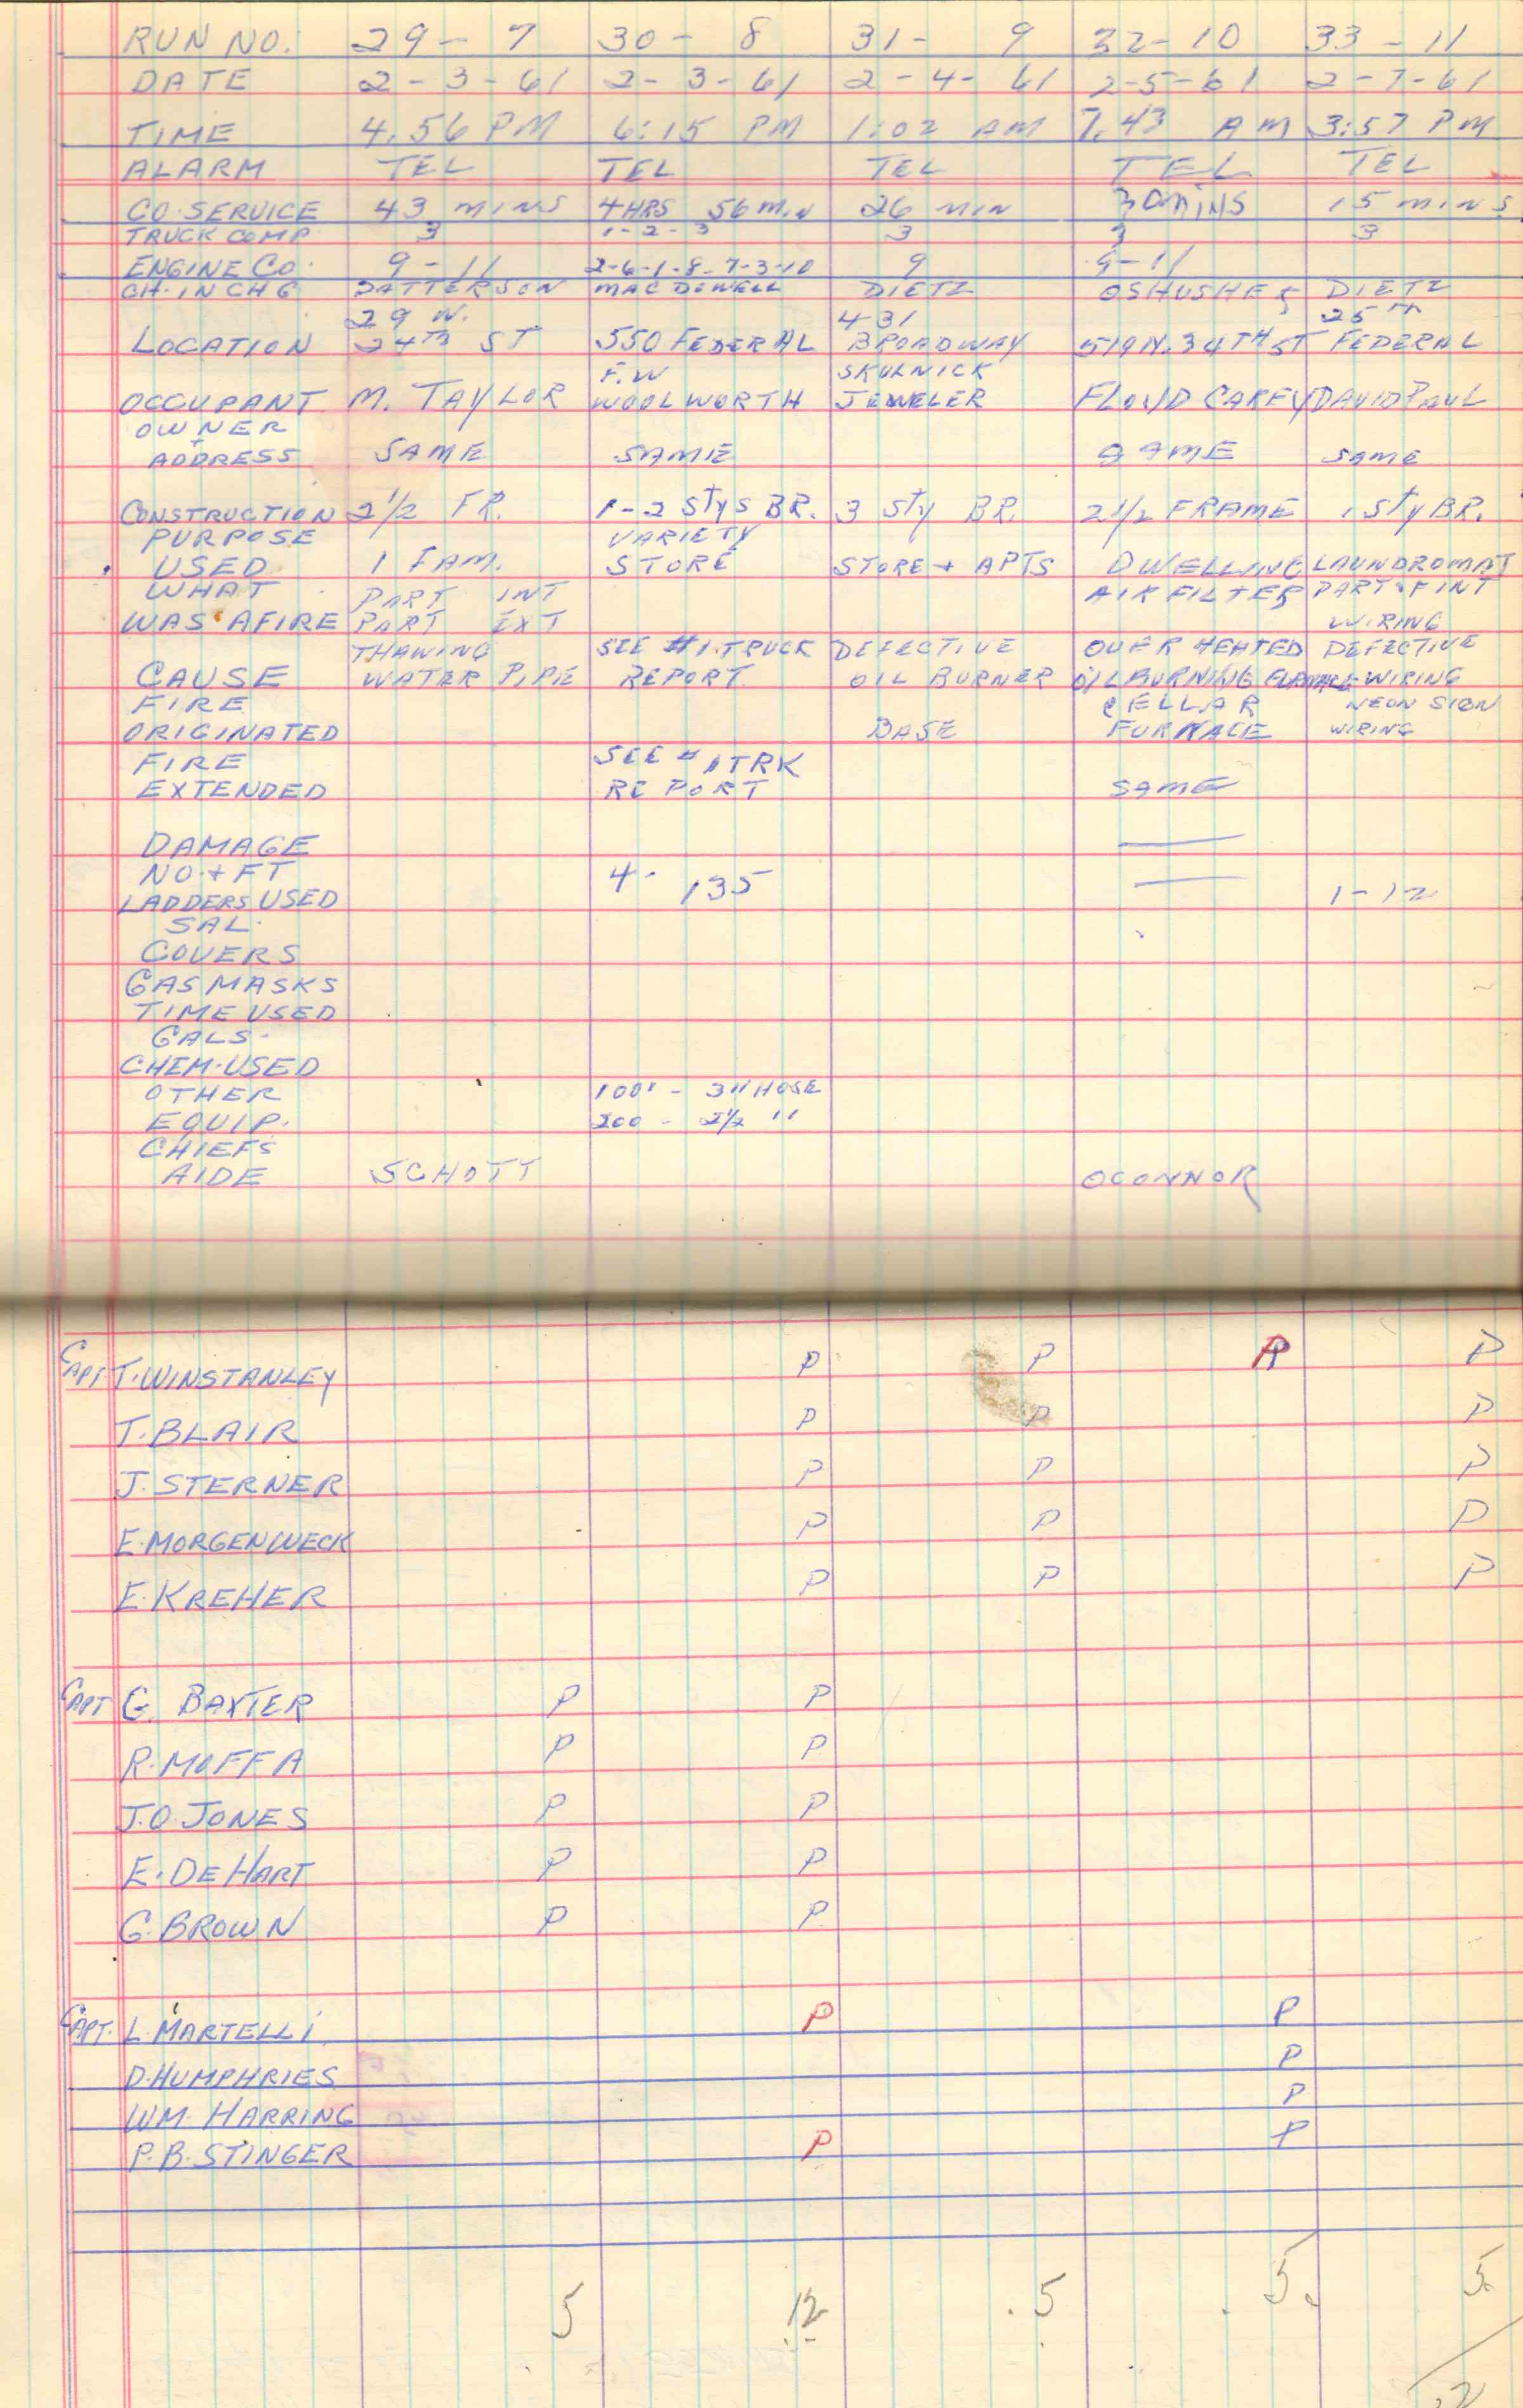 RUN NO. 29 - 7 30 - 8 31 - 9 32-10 33-11
DATE 2-3-61 2-3-61 2-4-61 2-5-61 2-7-61
TIME 4.56 PM 6:15 PM 1:02 AM 7.43 AM 3:57 PM
ALARM TEL TEL TEL TEL TEL
CO. SERVICE 43 MINS 4 HRS 56 MIN 26 MIN 30 MINS 15 MINS
TRUCK COMP. 3 1-2-3 3 3 3
ENGINE CO. 9-11 2-6-1-8-7-3-10 9 9-11
CH. IN CHG PATTERSON MAC DOWELL DIETZ DIETZ
29 W. 431 25TH
LOCATION 24TH ST 550 FEDERAL BROADWAY 519 N. 34TH ST FEDERAL
F.W SKULNICK
OCCUPANT M. TAYLOR WOOLWORTH JEWELER FLOYD CAREY DAVID PAUL
OWNER
+
ADDRESS SAME SAME SAME SAME
CONSTRUCTION 2 1/2 FR. 1-2 STYS BR. 3 STY BR. 2 1/2 FRAME 1 STY BR.
PURPOSE VARIETY
USED 1 FAM. STORE STORE + APTS DWELLING LAUNDROMAT
WHAT PART INT AIR FILTER PART OF INT
WAS AFIRE PART EXT WIRING
THAWING SEE #1 TRUCK DEFECTIVE OVER HEATED DEFECTIVE
CAUSE WATER PIPE REPORT OIL BURNER OIL BURNING WIRING
FIRE CELLAR NEON SIGN
ORIGINATED BASE FURNACE WIRING
FIRE SEE #1 TRK
EXTENDED REPORT SAME
DAMAGE —
NO. + FT 4 - 135 —
LADDERS USED 1-12
SAL.
COVERS
GAS MASKS
TIME USED
GALS.
CHEM. USED
OTHER 100' - 3" HOSE
EQUIP. 200 - 2 1/2 "
CHIEFS
AIDE SCHOTT OCONNOR
CAPT T. WINSTANLEY P P P P
T. BLAIR P P P
J. STERNER P P P
E. MORGENWECK P P P
E. KREHER P P P
CAPT G. BAXTER P P
R. MOFFA P P
J.O. JONES P P
E. DE HART P P
G. BROWN P P
CAPT. L. MARTELLI P P
D. HUMPHRIES P
WM. HARRING P
P.B. STINGER P P
5 12 5 5 5